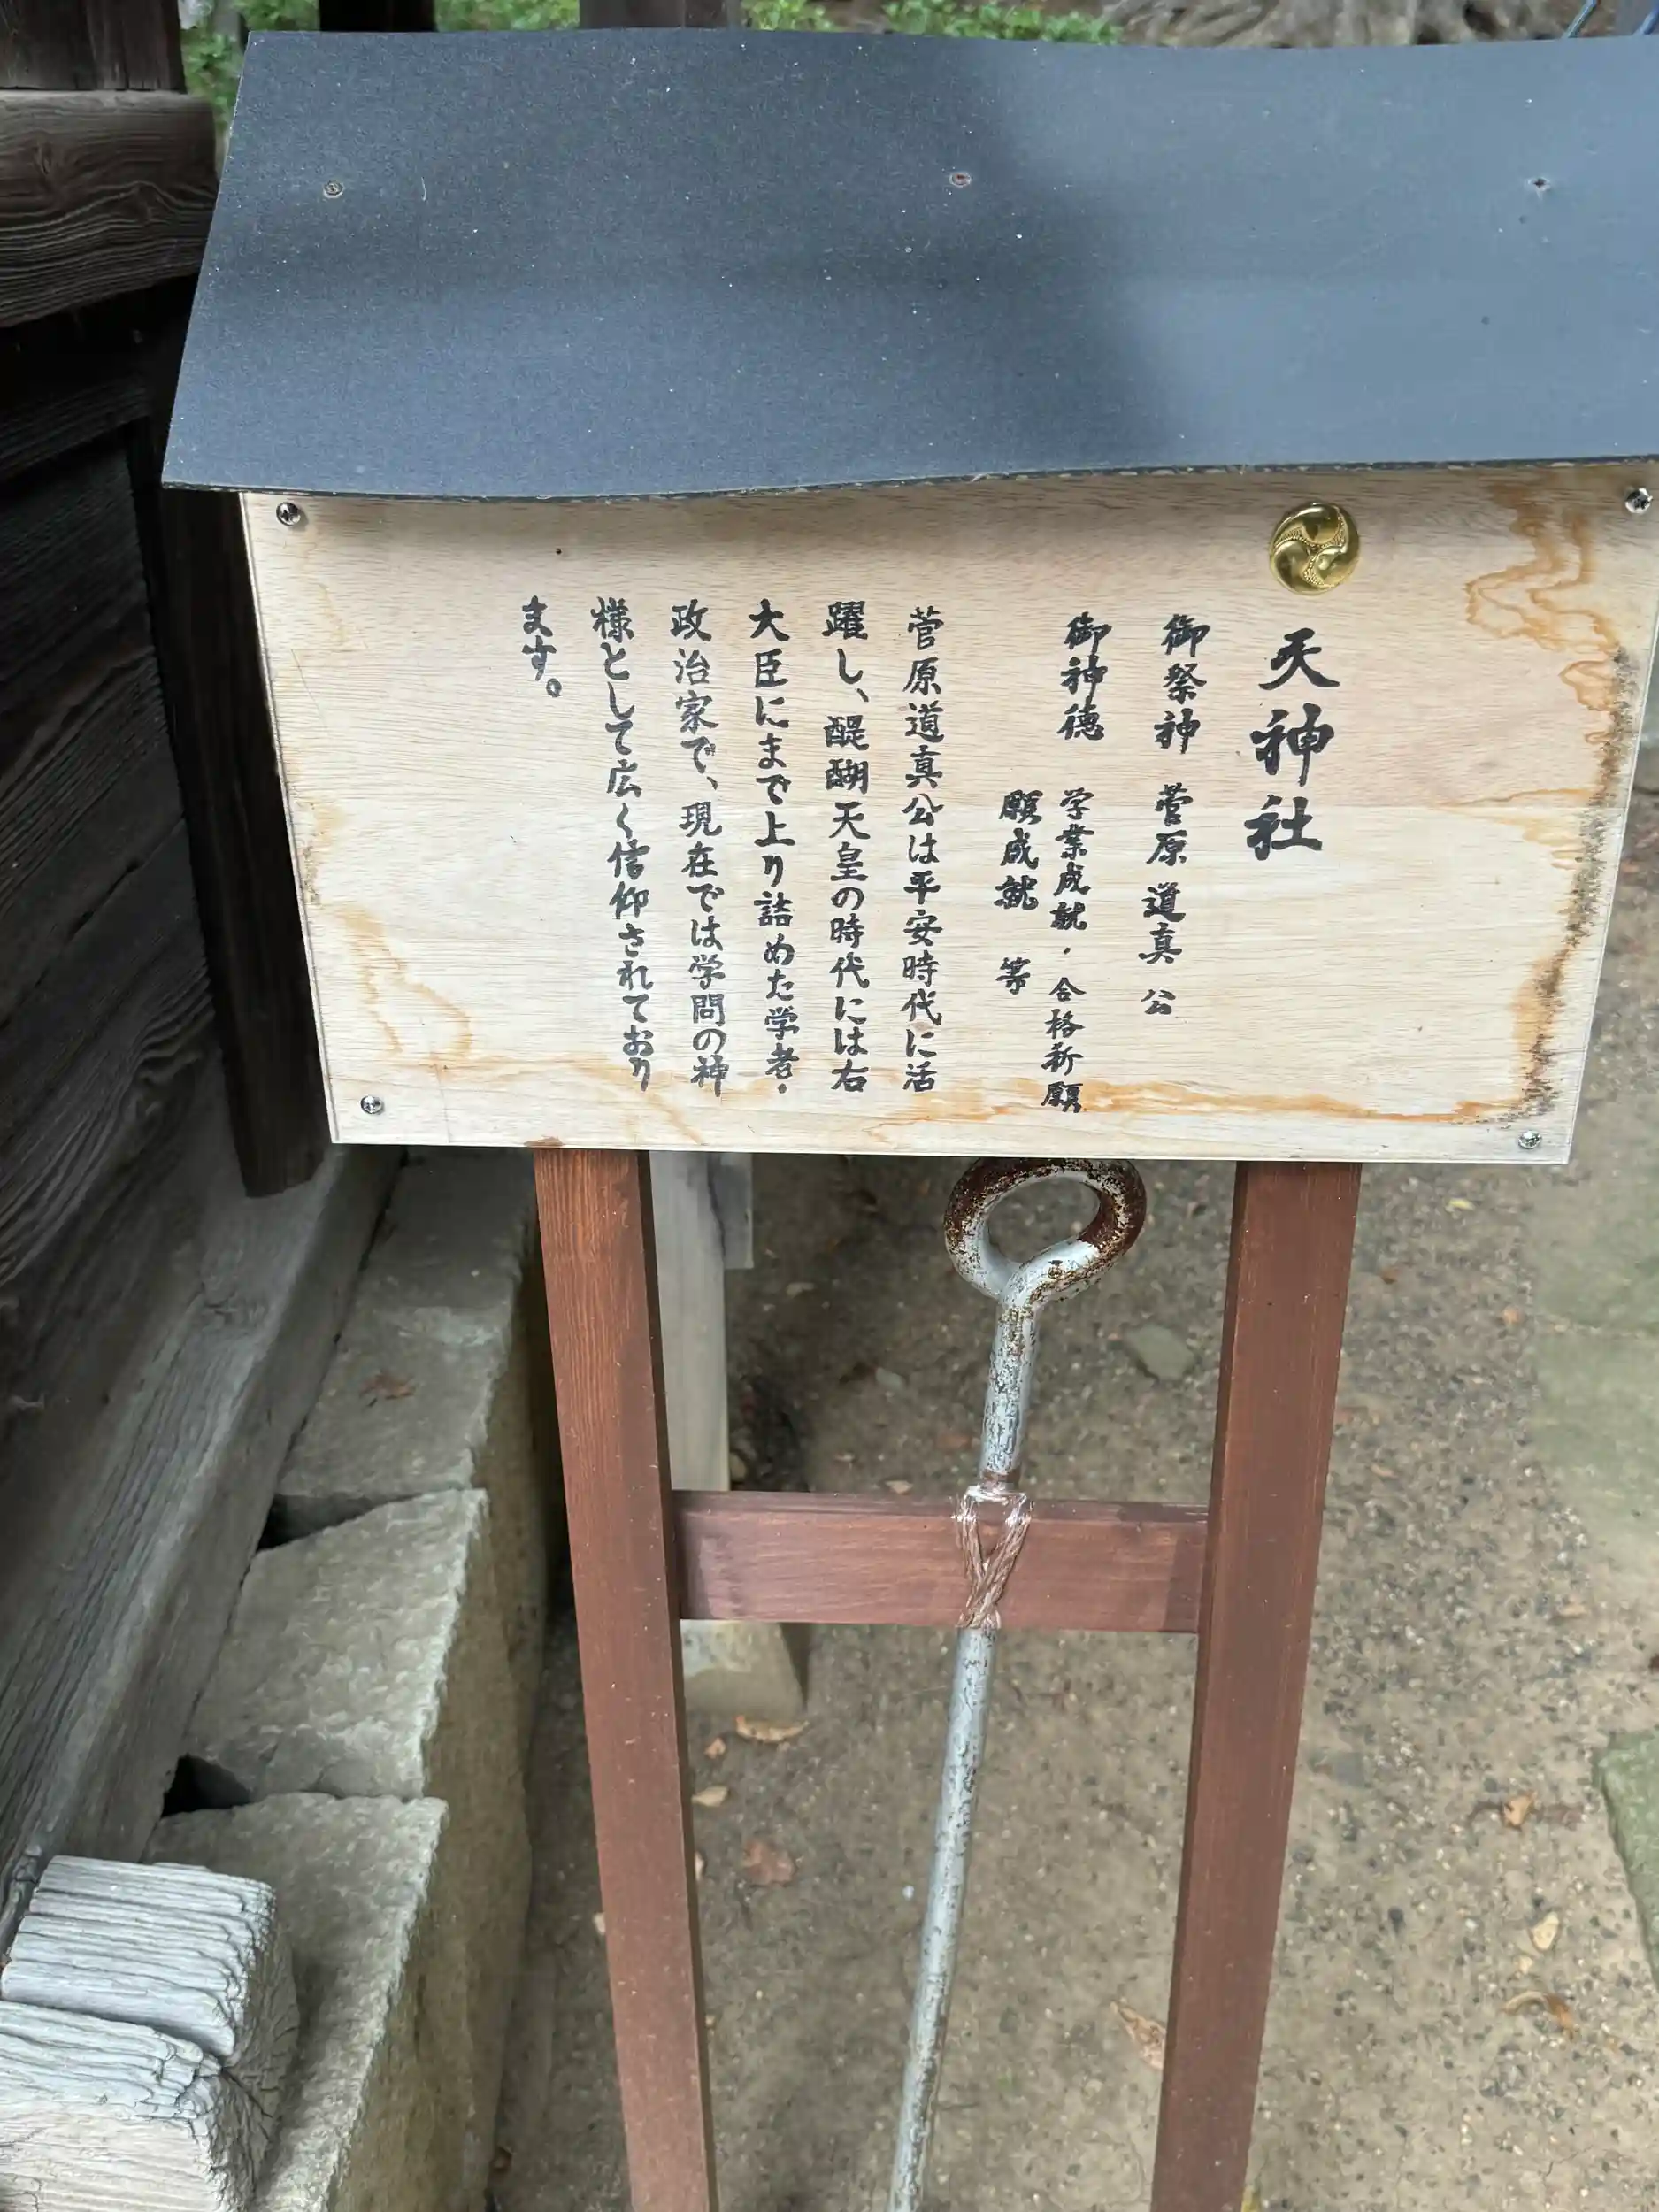 天神社
御祭神 菅原道真 公
御神徳 学業成就・合格祈願
願成就 等
菅原道真公は平安時代に活
躍し、醍醐天皇の時代には右
大臣にまで上り詰めた学者・
政治家で、現在では学問の神
様として広く信仰されており
ます。